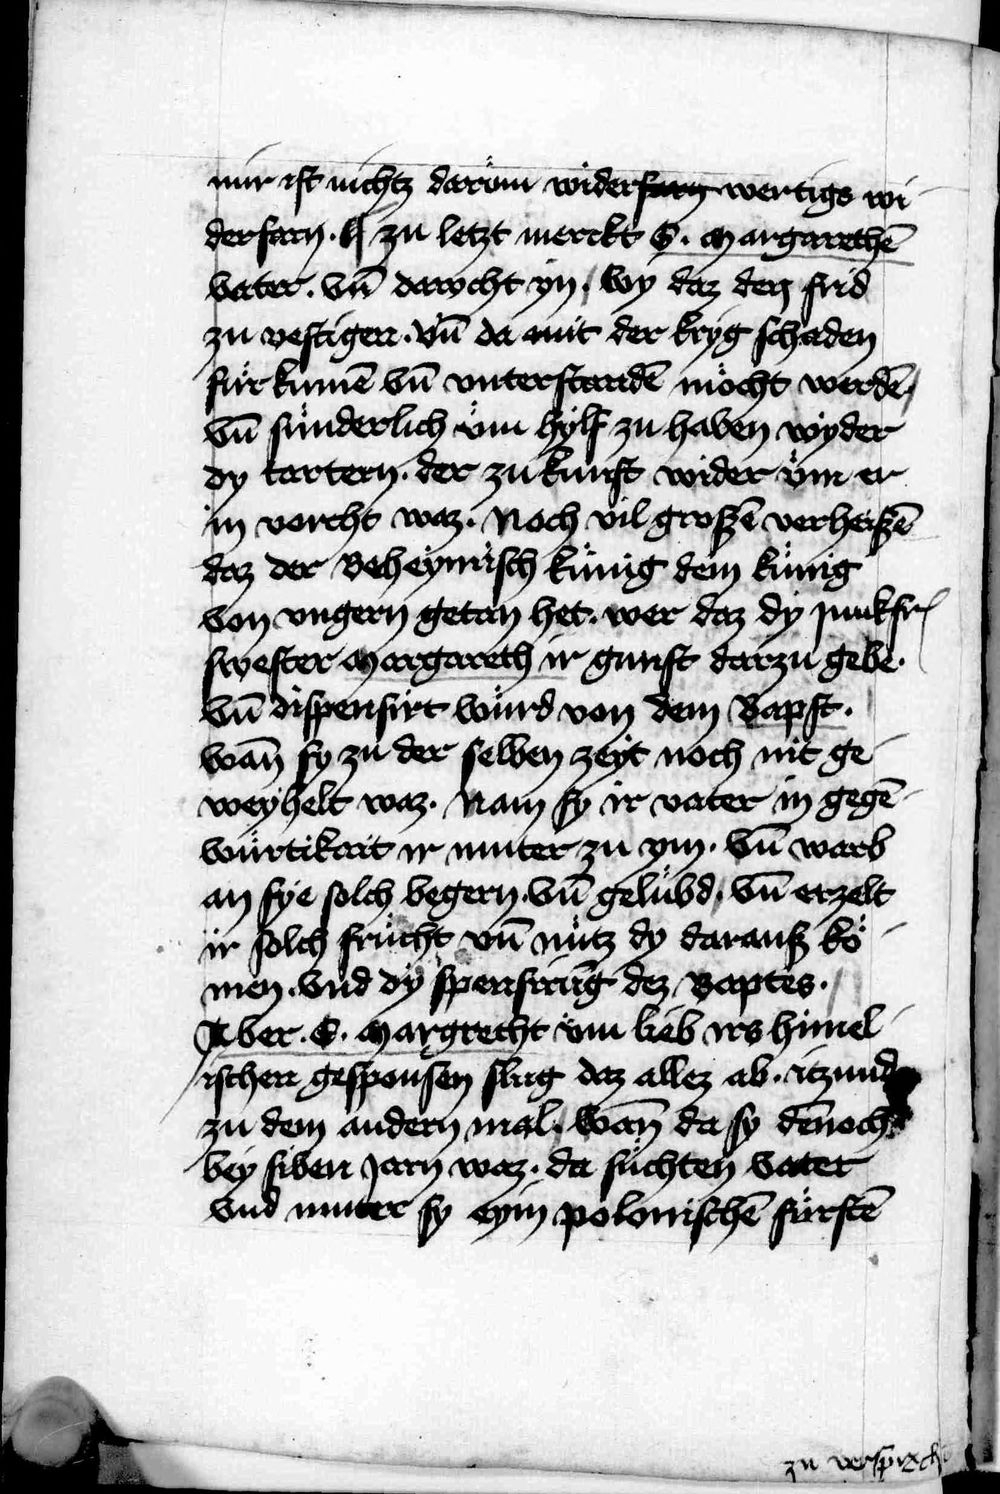 mir ist nichtz darüm widersarn wertigs wi-
dersarn. zu letzt merckt S. margarethē
vater. vn̄ dawcht yn, wy daz den frid
zu vestigen. vn̄ da mit der kryg schaden
für kumē vn̄ vnterstandē möcht werdē,
vn̄ sünderlich üm hylf zu haben wyder
dy tartern. der zukunft wider üm er
in vorcht waz. Noch vil groszē verheiszē
daz der Beheymisch künig dem künig
von vngern getan het. wer daz dy junkfr
swester margareth ir gunst darzu gebe.
vn̄ dispensirt würd von dem Bapst.
wan̄ sy zu der selben zeyt noch nit ge-
weyhelt waz. Nam sy ir vater in gegē-
würtikait ir muter zu ym. vn̄ warb
an sye solch begern. vn̄ gelübd, vn̄ erzelt
ir solch frücht vn̄ nütz dy darausz kö-
men. vnd dy spensirūg dez Baptes.
Aber. S. margrecht üm lieb irs himel-
ischen gesponsen slug daz allez ab. itzund
zu dem andern mal. wan̄ da sy dēnoch
bey siben jarn waz. da süchten vater
vnd muter sy eym polonischē fürstē
zu versprech